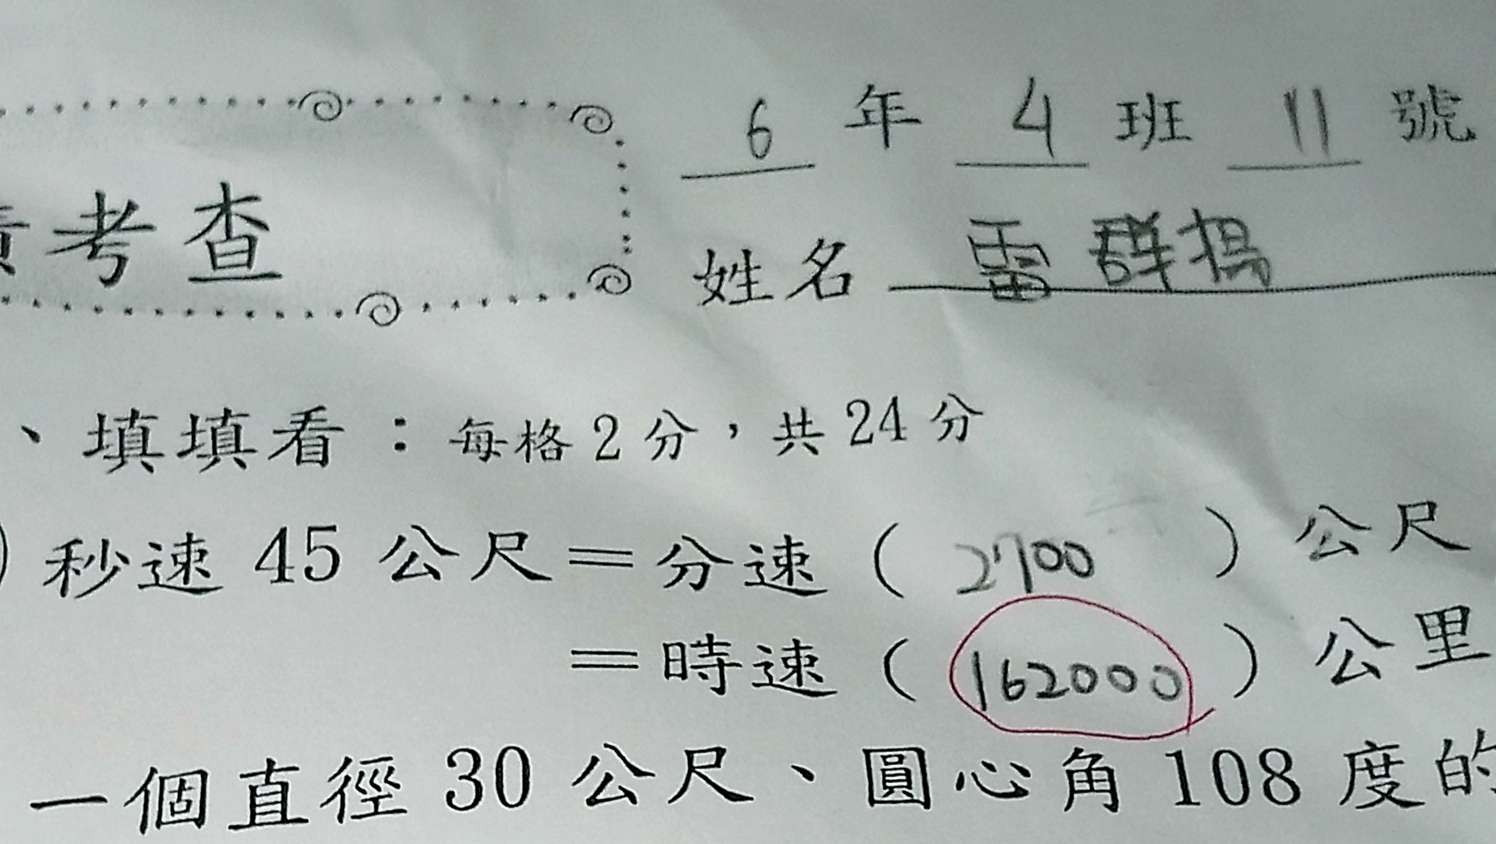 6 年 4 班 11 號
考查
姓名 雷群揚
、填填看：每格2分，共24分
) 秒速 45 公尺＝分速（ 2700 ）公尺
＝時速（ 162000 ）公里
一個直徑 30 公尺、圓心角 108 度的